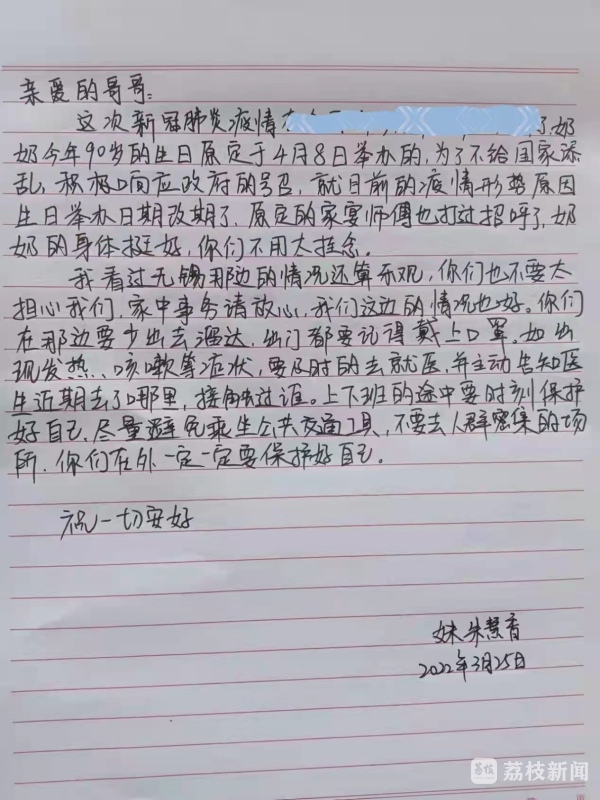 亲爱的哥哥：
这次新冠肺炎疫情 了，奶
奶今年90岁的生日原定于4月8日举办的，为了不给国家添
乱，积极响应政府的号召，就目前的疫情形势原因
生日举办日期改期了，原定的家宴师傅也打过招呼了，奶
奶的身体挺好，你们不用太挂念。
我看过无锡那边的情况还算乐观，你们也不要太
担心我们，家中事务请放心，我们这边的情况也好。你们
在那边要少出去溜达，出门都要记得戴上口罩。如出
现发热、咳嗽等症状，要及时的去就医，并主动告知医
生近期去了哪里，接触过谁。上下班的途中要时刻保护
好自己，尽量避免乘坐公共交通工具，不要去人群密集的场
所，你们在外一定一定要保护好自己。
祝一切安好
妹朱慧香
2022年3月25日
荔枝新闻